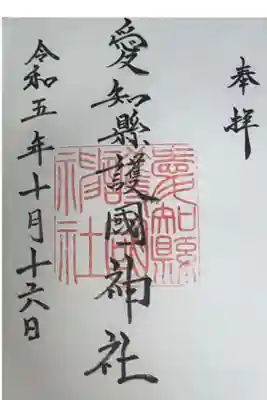 奉拝
愛知縣護國神社
令和五年十月十六日
愛知縣
護國
神社